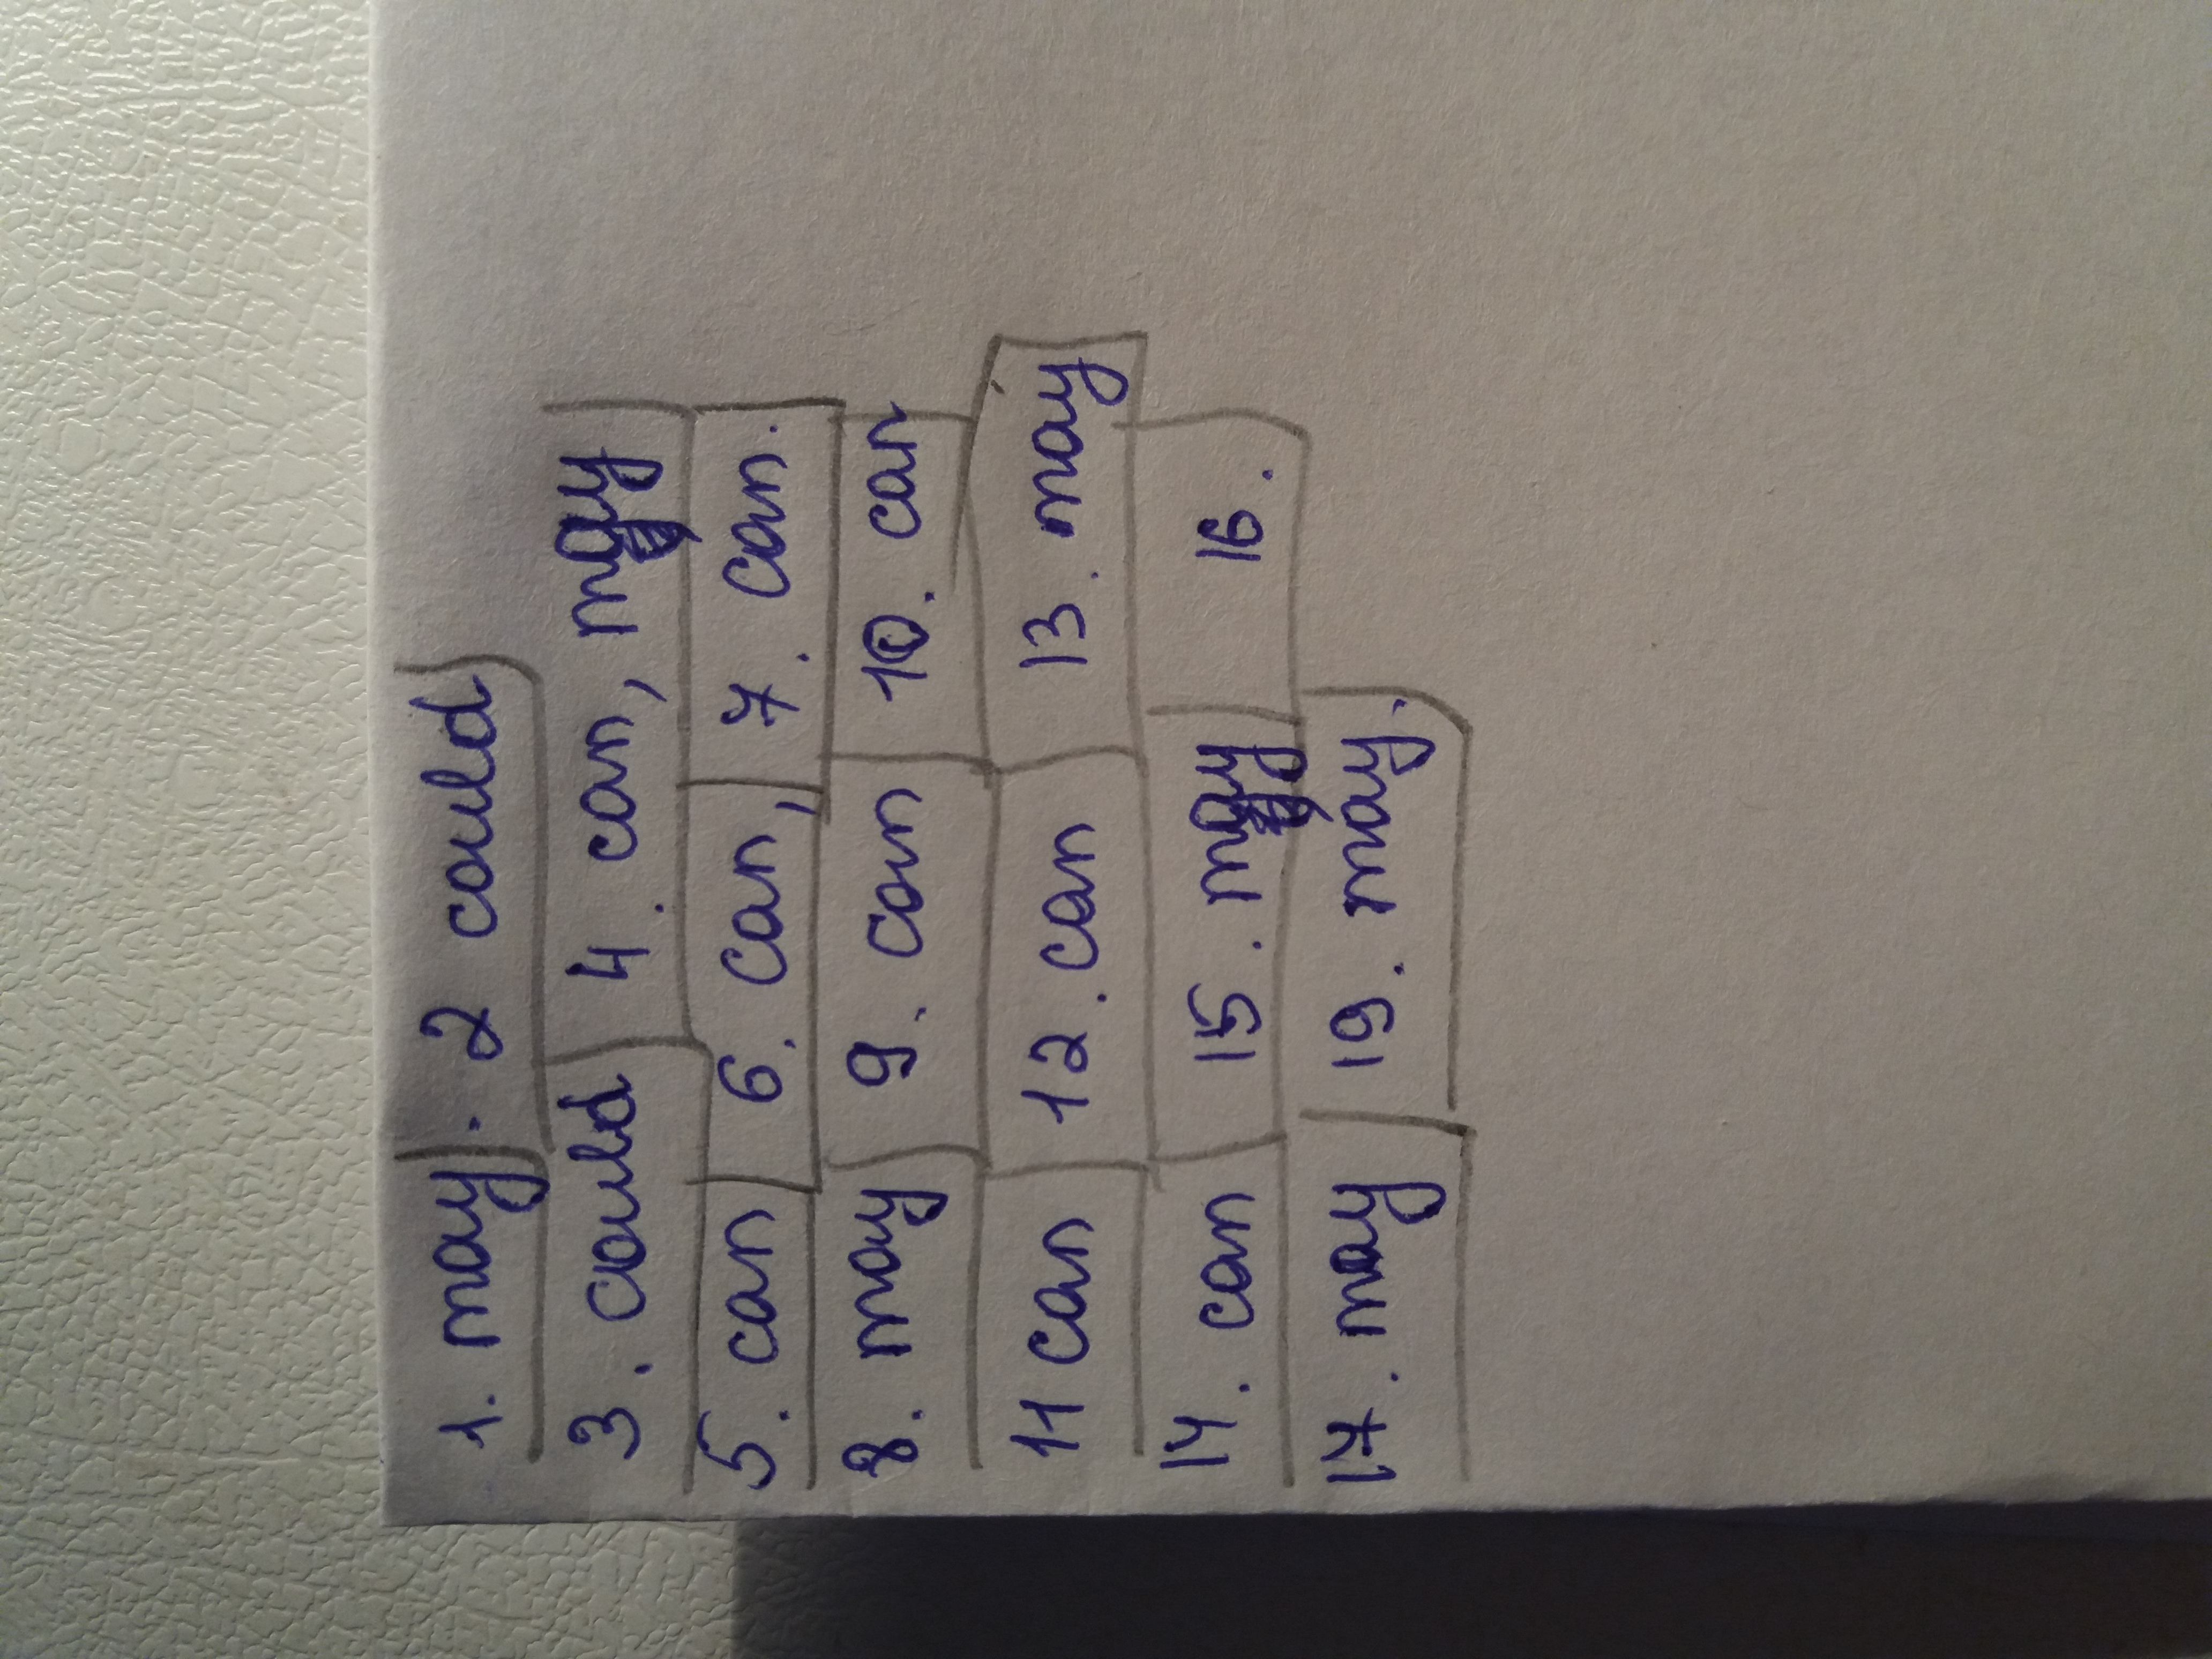 1. may. 2 could
3. could 4. can, may
5. can 6. can, 7. can.
8. may 9. can 10. can
11 can 12. can 13. may
14. can 15. may 16.
17. may 19. may.